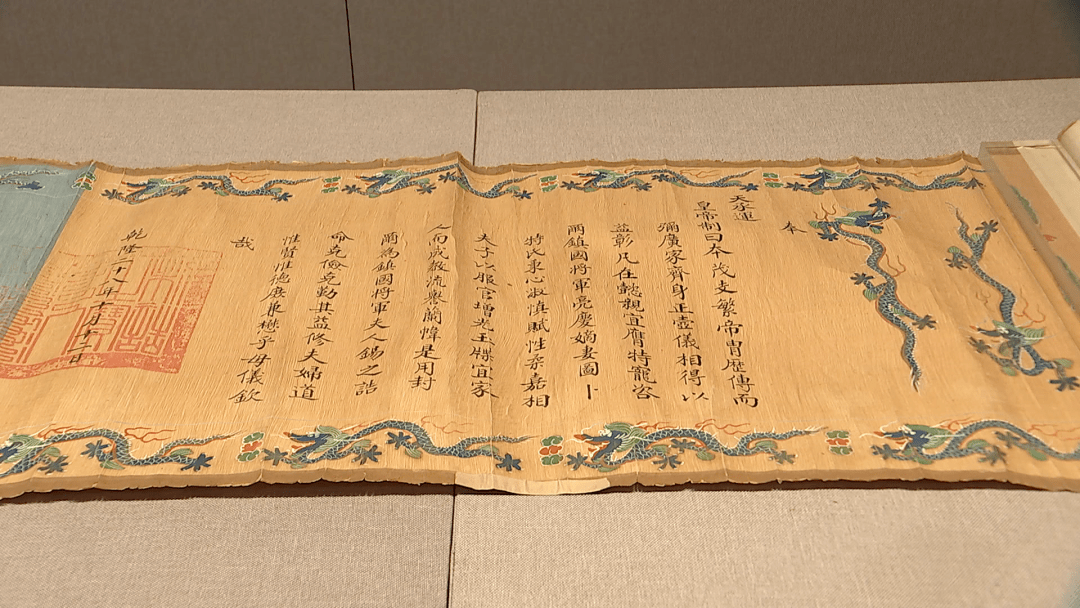 奉
天承運
皇帝制曰奉茂支繁帝冑歷傳而
彌廣家齊身正壺儀相得以
益彰凡在懿親宜膺特寵咨
爾鎮國將軍亮慶嫡妻圖卜
特氏秉心淑慎賦性柔嘉相
夫子以服官增光玉牒宜家
人而成教流譽蘭幃是用封
爾爲鎮國將軍夫人錫之誥
命克儉克勤其益修夫婦道
惟賢惟德庶永懋乎母儀欽
哉
乾隆二十八年十月十二日